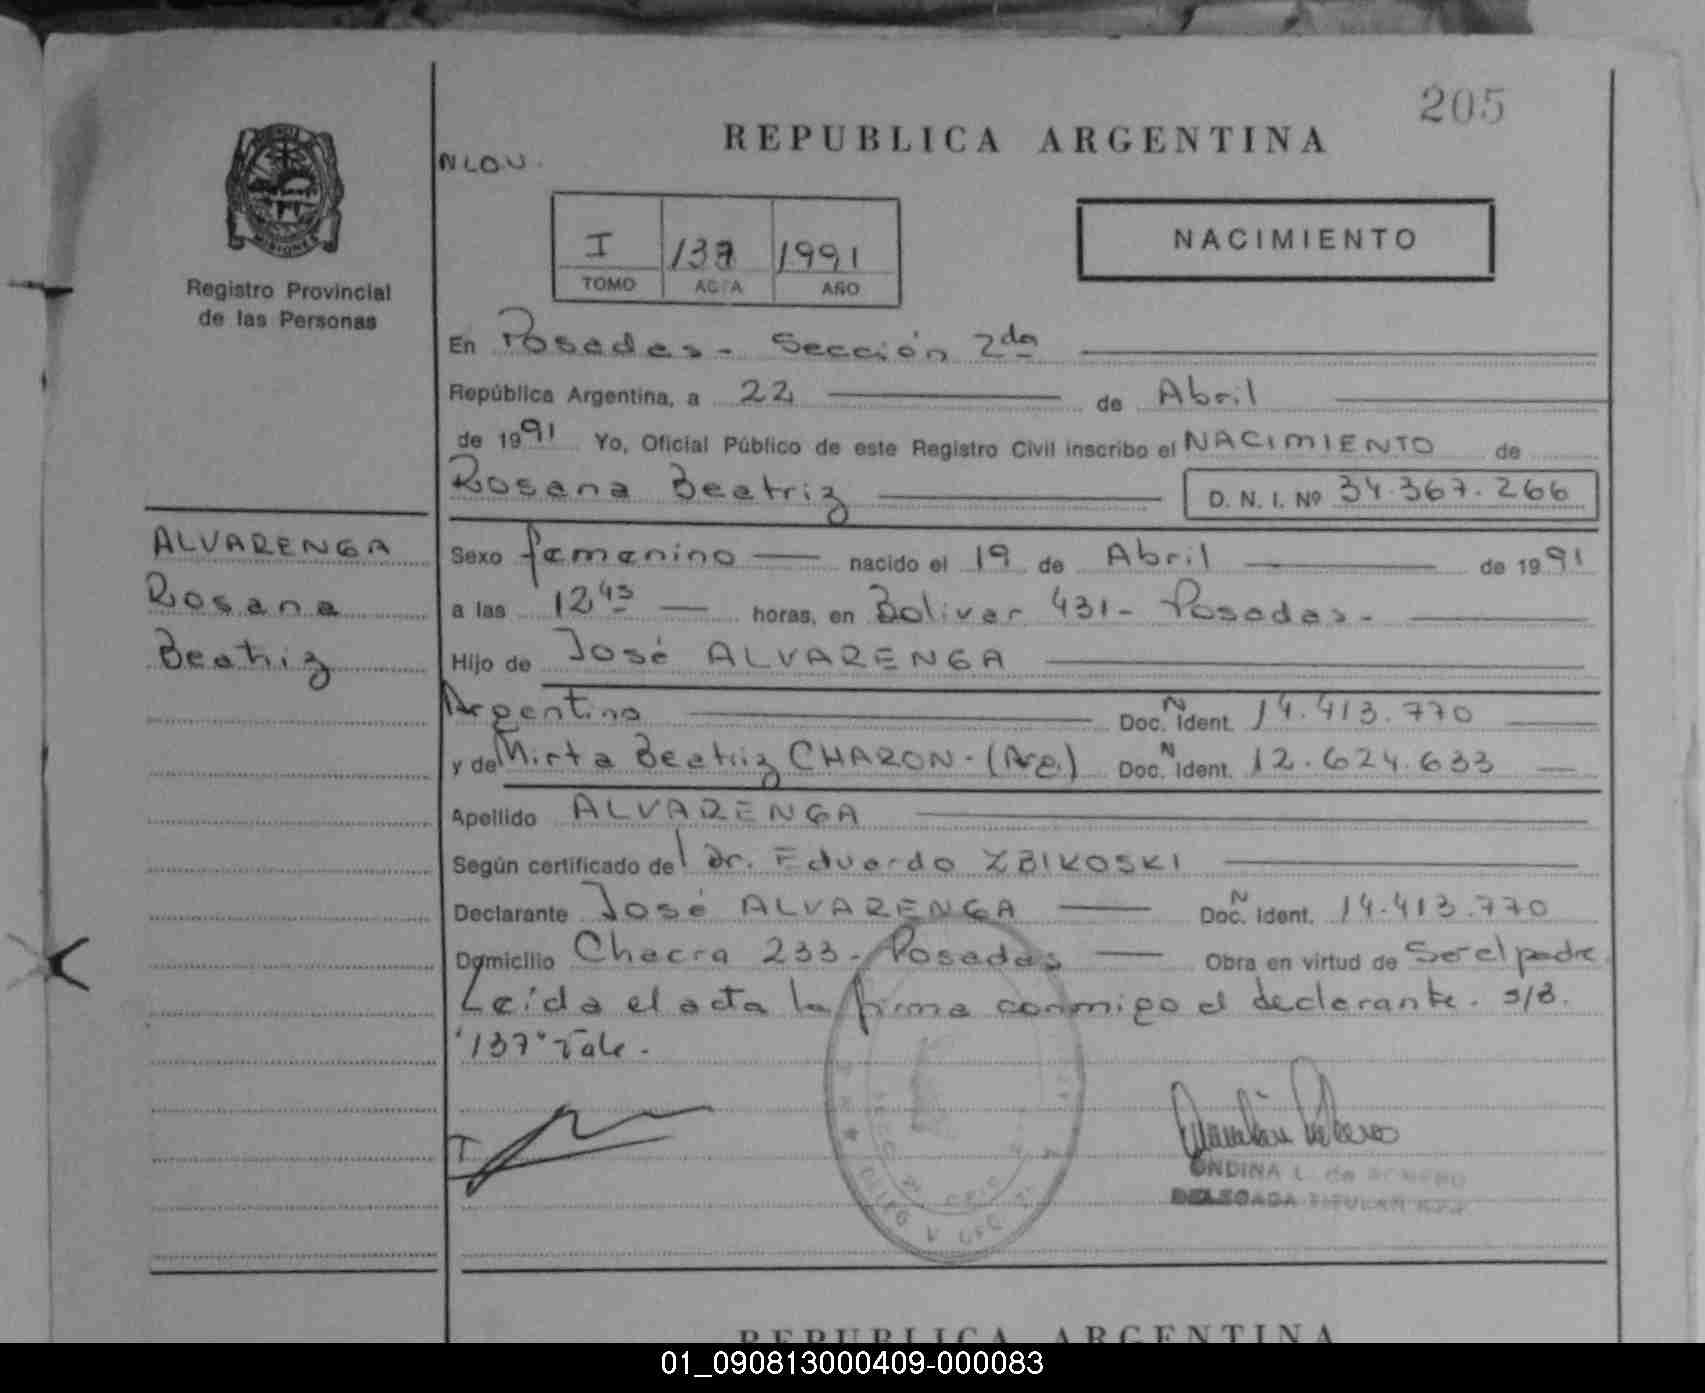 205
REPUBLICA ARGENTINA
MISIONES
Registro Provincial
de las Personas
I 137 1991
TOMO ACTA AÑO
NACIMIENTO
En Posadas - Sección 2da
República Argentina, a 22 de Abril
de 1991 Yo, Oficial Público de este Registro Civil inscribo el NACIMIENTO de
Rosana Beatriz D. N. I. Nº 34.367.266
ALVARENGA
Rosana
Beatriz
Sexo femenino nacido el 19 de Abril de 1991
a las 12 45 horas, en Bolivar 431 - Posadas -
Hijo de José ALVARENGA
Argentino Doc. N Ident. 14.413.770
y de Mirta Beatriz CHARON - (Arg.) Doc. N Ident. 12.624.633
Apellido ALVARENGA
Según certificado del Dr. Eduardo ZBIKOSKI
Declarante José ALVARENGA Doc. N Ident. 14.413.770
Domicilio Chacra 233 - Posadas Obra en virtud de Ser el padre.
Leida el acta la firma conmigo el declarante. s/b.
"137" Vale.
ONDINA L. de ROMERO
DELEGADA TITULAR R.P.P.
REPUBLICA ARGENTINA
01_090813000409-000083